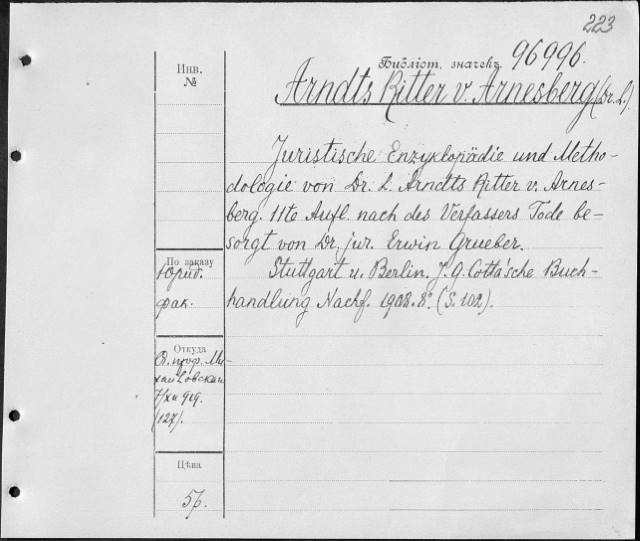 223
Библіот. значекъ 96996.
Инв.
№
Arndts Ritter v. Arnesberg (Dr. L.)
Juristische Enzyklopädie und Metho-
dologie von Dr. L. Arndts Ritter v. Arnes-
berg. 11te Aufl. nach des Verfassers Tode be-
sorgt von Dr. jur. Erwin Grueber.
Stuttgart u. Berlin. J. G. Cotta'sche Buch-
handlung Nachf. 1908. 8º. (S. 102).
По заказу
Юрид.
фак.
Откуда
проф. Ми-
хайловскаго
(127).
Цѣна